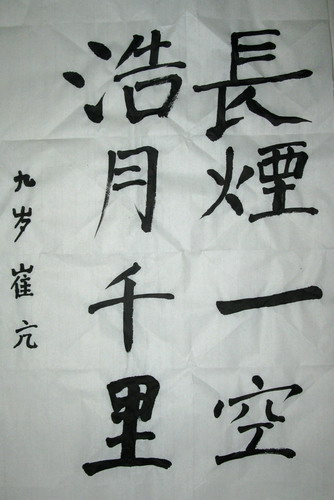 長煙一空
浩月千里
九岁崔亢